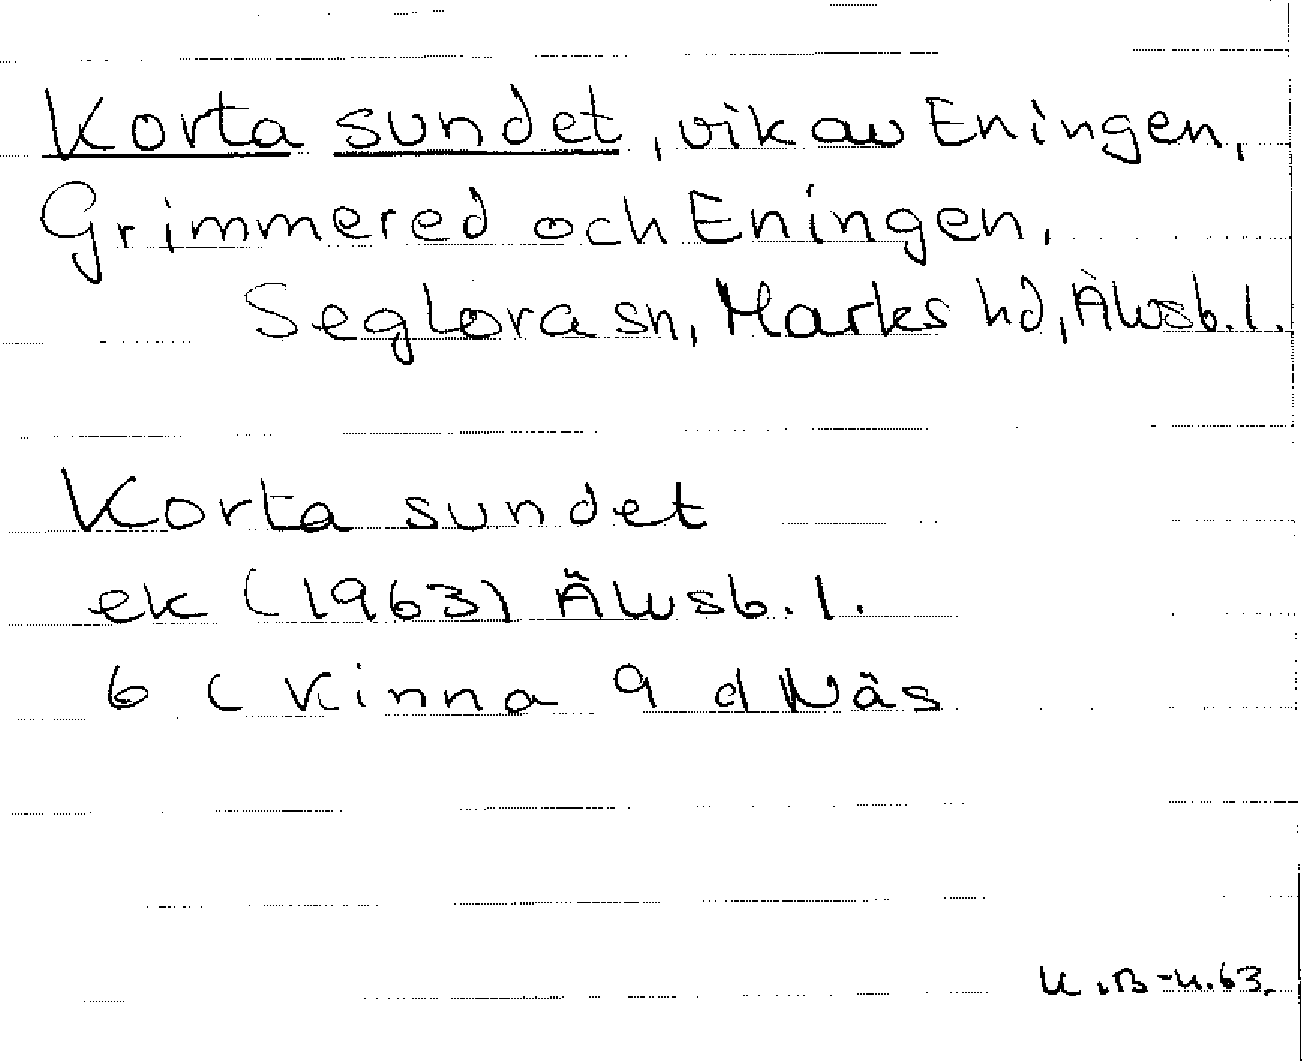 Korta sundet, vik av Eningen,
Grimmered och Eningen,
Seglora sn, Marks hd, Älvsb. l.
Korta sundet
ek (1963) Älvsb. l.
6 C Kinna 9 d Näs
K.B-K.63.